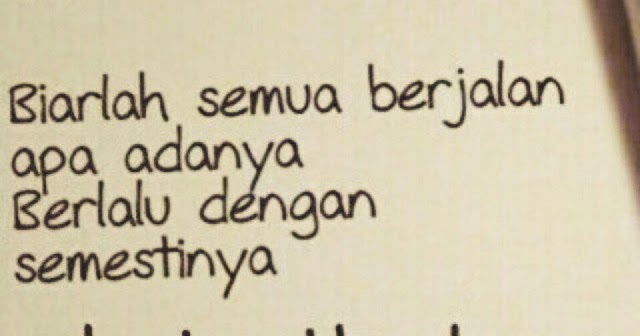 Biarlah semua berjalan
apa adanya
Berlalu dengan
semestinya